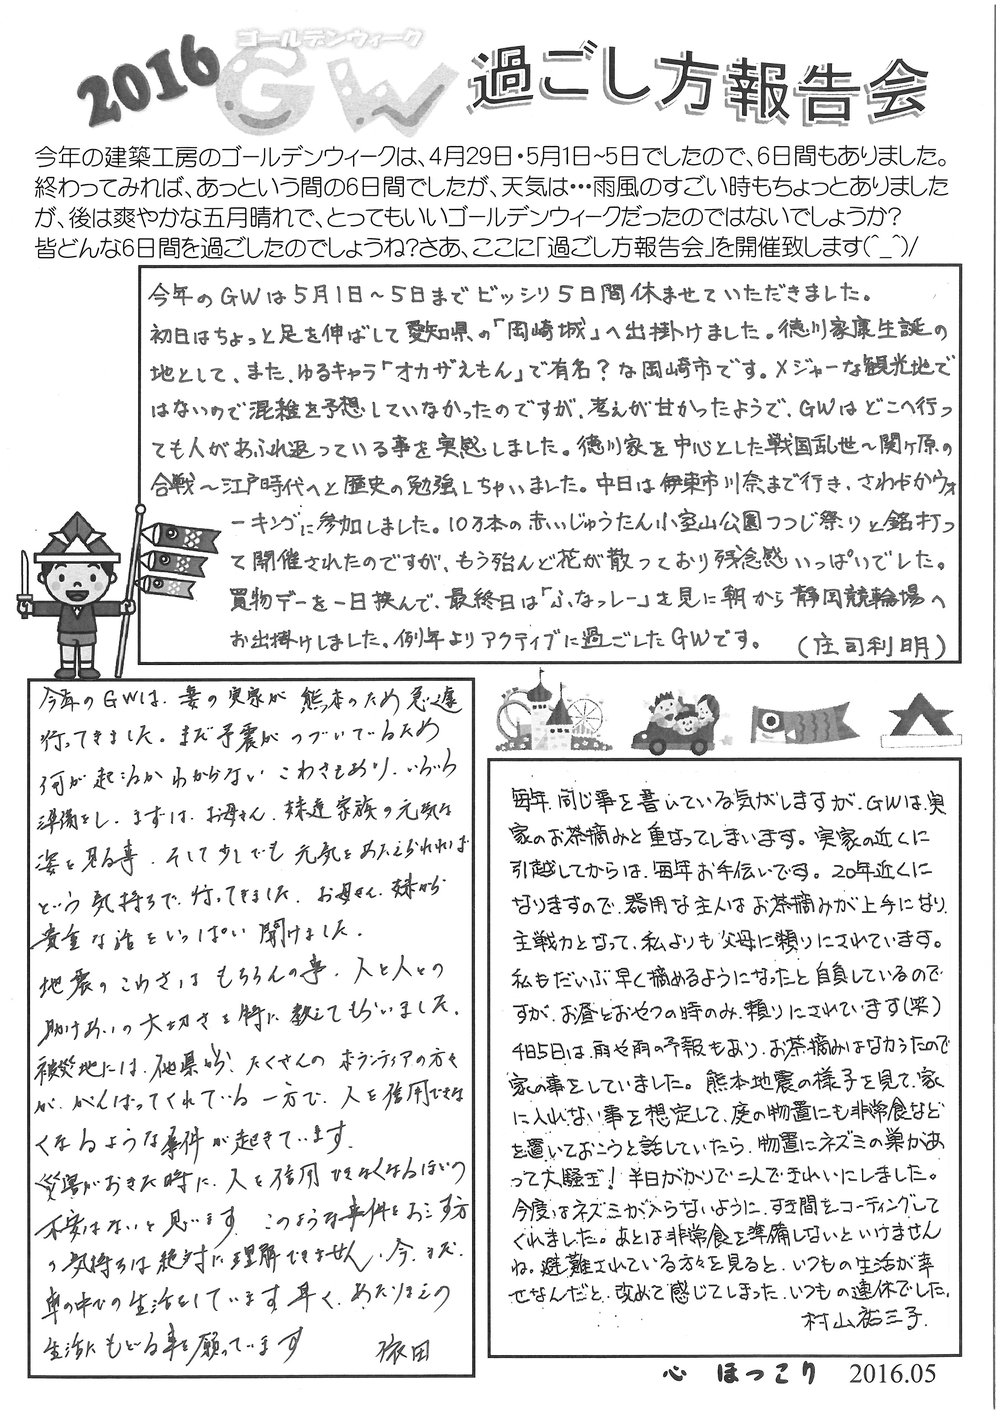 2016 ゴールデンウィーク
GW 過ごし方報告会
今年の建築工房のゴールデンウィークは、4月29日・5月1日~5日でしたので、6日間もありました。
終わってみれば、あっという間の6日間でしたが、天気は…雨風のすごい時もちょっとありました
が、後は爽やかな五月晴れで、とってもいいゴールデンウィークだったのではないでしょうか?
皆どんな6日間を過ごしたのでしょうね?さあ、ここに「過ごし方報告会」を開催致します(^_^)/
今年のGWは5月1日～5日までビッシリ5日間休ませていただきました。
初日はちょっと足を伸ばして愛知県の「岡崎城」へ出掛けました。徳川家康生誕の
地として、また、ゆるキャラ「オカザえもん」で有名?な岡崎市です。メジャーな観光地で
はないので混雑を予想していなかったのですが、考えが甘かったようで、GWはどこへ行っ
ても人があふれ返っている事を実感しました。徳川家を中心とした戦国乱世～関ヶ原の
合戦～江戸時代へと歴史の勉強しちゃいました。中日は伊東市川奈まで行き、さわやかウォ
ーキングに参加しました。10万本の赤いじゅうたん小室山公園つつじ祭りと銘打っ
て開催されたのですが、もう殆んど花が散っており残念感いっぱいでした。
買物デーを一日挟んで、最終日は「ふなっしー」を見に朝から静岡競輪場へ
お出掛けしました。例年よりアクティブに過ごしたGWです。 (庄司利明)
今年のGWは、妻の実家が熊本のため急遽
行ってきました。まだ予震がつづいているため
何が起こるかわからないこわさもあり、いろいろ
準備をし、まずは、お母さん、妹達家族の元気な
姿を見る事、そして少しでも元気をあたえられれば
という気持ちで、行ってきました。お母さん、妹から
貴重な話をいっぱい聞けました。
地震のこわさはもちろんの事、人と人との
助けあいの大切さを特に教えてもらいました。
被災地には、他県から、たくさんのボランティアの方々
が、がんばってくれている一方で、人を信用できな
くなるような事件が起きています。
災害がおきた時に、人を信用できなくなるほどの
不安はないと思います。このような事件をおこす方
の気持ちは絶対に理解できません。今、まだ、
車の中での生活をしています。早く、あたりまえの
生活にもどる事を願っています 依田
毎年、同じ事を書いている気がしますが、GWは、実
家のお茶摘みと重なってしまいます。実家の近くに
引越してからは、毎年お手伝いです。20年近くに
なりますので、器用な主人はお茶摘みが上手になり、
主戦力となって、私よりも父母に頼りにされています。
私もだいぶ早く摘めるようになったと自負しているので
すが、お昼とおやつの時のみ、頼りにされています(笑)
4日5日は、雨や雨の予報もあり、お茶摘みはなかったので
家の事をしていました。熊本地震の様子を見て、家
に入れない事を想定して、庭の物置にも非常食など
を置いておこうと話していたら、物置にネズミの巣があ
って大騒ぎ!半日がかりで二人できれいにしました。
今度はネズミが入らないように、すき間をコーティングして
くれました。あとは非常食を準備しないといけません
ね。避難されている方々を見ると、いつもの生活が幸
せなんだと、改めて感じてしまった、いつもの連休でした。
村山裕三子
心 ほっこり 2016.05